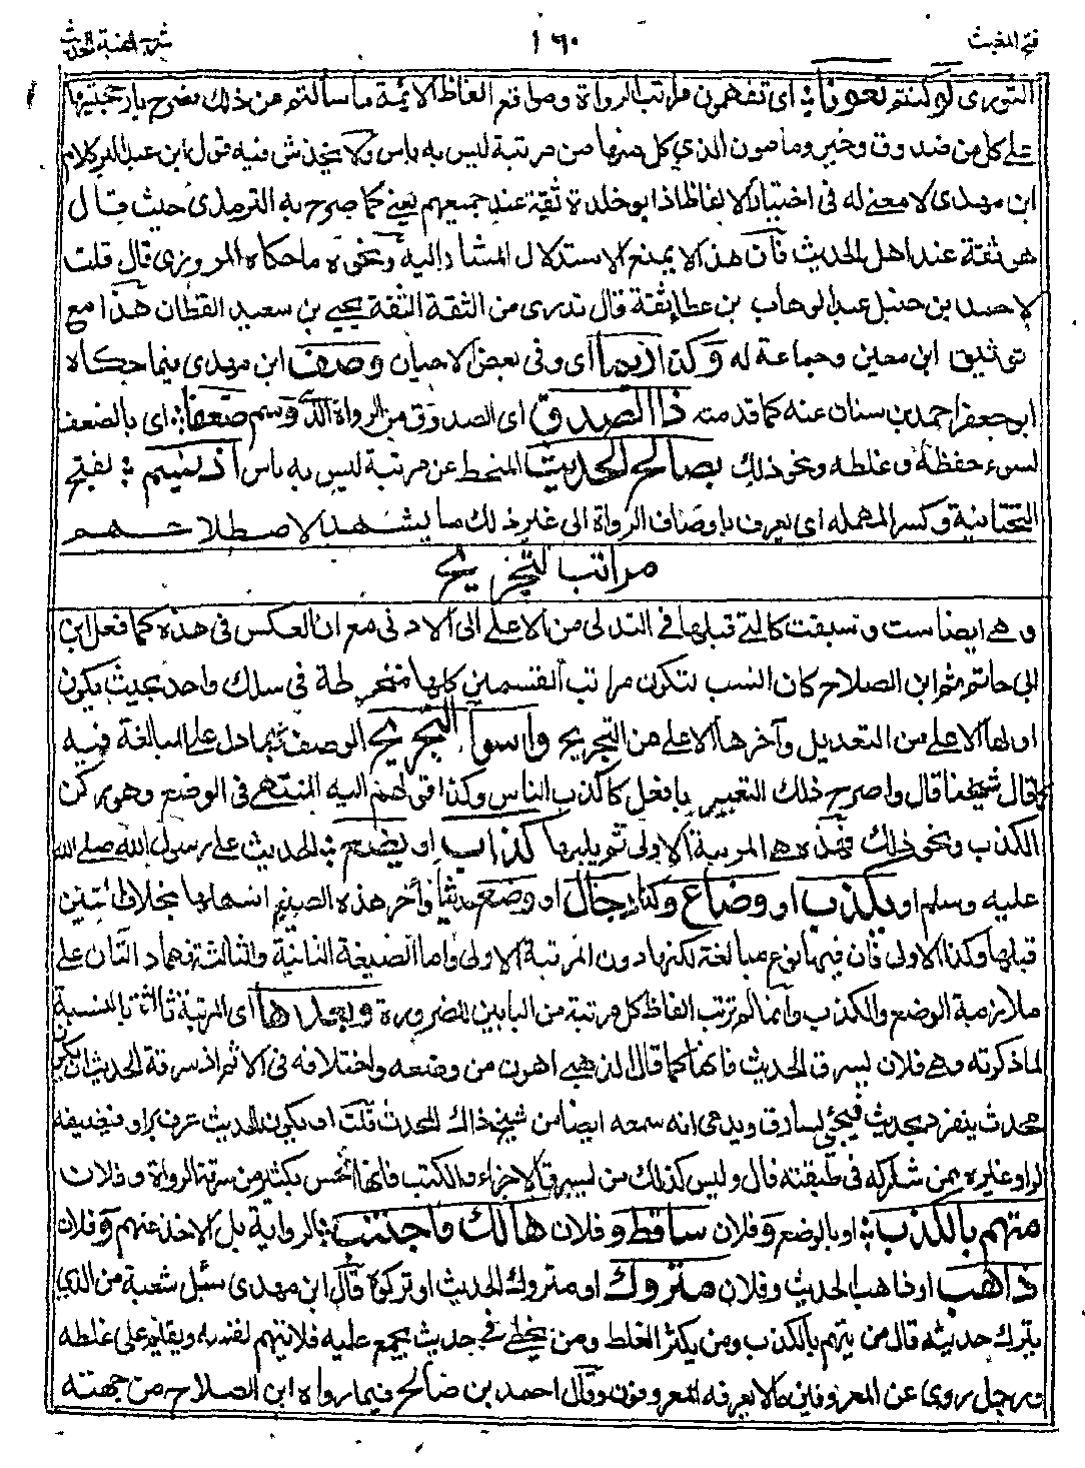 فتح المغيث
١٦٠
شرح الفية الحديث
الثوري لو كنتم تعونا؛ اي تفهمون مراتب الرواة ومواقع الفاظ الائمة ما سألتم عن ذلك فصرح بارجحيتها
على كل من صدوق وخير ومامون الذي كل منها من مرتبة ليس به باس ولا يخدش فيه قول ابن عبد البر كلام
ابن مهدى لا معنى له فى اختيار الالفاظ اذ ابو خلدة ثقة عند جميعهم يعنى كما صرح به الترمذى حيث قال
هو ثقة عند اهل الحديث فان هذا لا يمنع الاستدلال المشار اليه ونحوه ما حكاه المروزى قال قلت
لاحمد بن حنبل عبد الوهاب بن عطا ثقة قال تدرى من الثقة الثقة يحيى بن سعيد القطان هذا مع
توثيق ابن معين وجماعة له وكذا ربما اى وفى بعض الاحيان وصف ابن مهدى فيما حكاه
ابو جعفر احمد بن سنان عنه كما قدمته ذا الصدق اى الصدوق من الرواة الذ وسم ضعفا؛ اى بالضعف
لسوء حفظه وغلطه ونحو ذلك بصالح الحديث المنحط عن مرتبة ليس به باس اذ يسم؛ بفتح
التحتانية وكسر المهمله اى يعرف باوصاف الرواة الى غير ذلك مما يشهد لاصطلاحهم
مراتب التجريح
وهى ايضا ست وسيقت كالتى قبلها فى التدلى من الاعلى الى الادنى مع ان العكس فى هذه كما فعل ابن
ابى حاتم ثم ابن الصلاح كان انسب لتكون مراتب القسمين كلها منخرطة فى سلك واحد بحيث يكون
اولها الاعلى من التعديل وآخرها الاعلى من التجريح واسوأ التجريح الوصف بما دل على المبالغة فيه
كما قال شيخنا قال واصرح ذلك التعبير بافعل كاكذب الناس وكذا قولهم اليه المنتهى فى الوضع وهو ركن
الكذب ونحو ذلك فهذه هى المرتبة الاولى ثم يليها كذاب او يضع؛ الحديث على رسول الله صلى الله
عليه وسلم او يكذب او وضاع وكذا دجال او وضع حديثا وآخر هذه الصيغ اسهلها بخلاف اثنتين
قبلها وكذا الاولى فان فيها نوع مبالغة لكنها دون المرتبة الاولى واما الصيغة الثانية والثالثة فهما دالتان على
ملازمة الوضع والكذب وانما لم ترتب الفاظ كل مرتبة من البابين للضرورة وبعدها اى المرتبة ثالثة بالنسبة
لما ذكرته وهى فلان يسرق الحديث فانها كما قال الذهبى اهون من وضعه واختلاقه فى الاثم اذ سرقة الحديث ان يكون
محدث ينفرد بحديث فيجئ السارق ويدعى انه سمعه ايضا من شيخ ذاك المحدث قلت او يكون الحديث عرف براو فيضيفه
لراو غيره ممن شاركه فى طبقته قال وليس كذلك من يسرق الاجزاء والكتب فانها انحس بكثير من سرقة الرواة وفلان
متهم بالكذب؛ او بالوضع وفلان ساقط وفلان هالك فاجتنب؛ الرواية بل الاخذ عنهم وفلان
ذاهب او ذاهب الحديث وفلان متروك او متروك الحديث او تركوه قال ابن مهدى سئل شعبة من الذى
يترك حديثه قال من يتهم بالكذب ومن يكثر الغلط ومن يخطئ فى حديث يجمع عليه فلا يتهم نفسه ويقيم على غلطه
ورجل روى عن المعروفين ما لا يعرفه المعروفون وقال احمد بن صالح فيما رواه ابن الصلاح من جهته